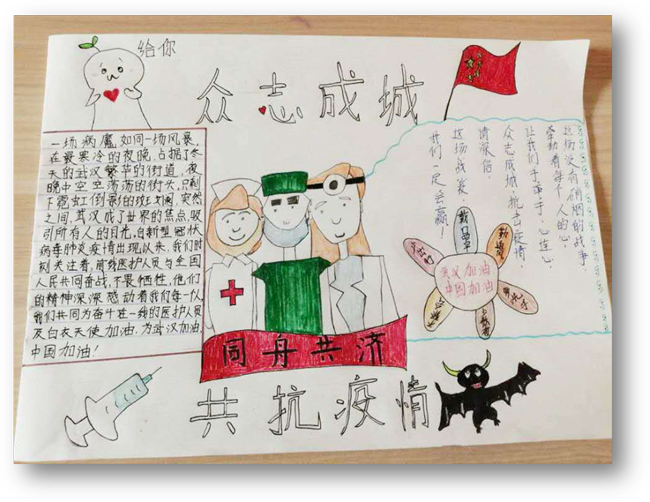 给你
众志成城
一场病魔如同一场风暴,
在最寒冷的夜晚,占据了冬
天的武汉繁华的街道,夜
晚中空空荡荡的街头,只剩
下霓虹倒影的斑斓,突然
之间,武汉成了世界的焦点,吸
引所有人的目光,自新型冠状
病毒肺炎疫情出现以来,我们时
刻关注着,前线医护人员与全国
人民共同奋战,不畏牺牲,他们
的精神深深感动着我们每一个人
我们共同为奋斗在一线的医护人员
及白衣天使加油,为武汉加油
中国加油!
这场没有硝烟的战争
牵动着每个人的心,
让我们手牵手、心连心,
众志成城,抗击疫情,
请深信:
这场战役,
我们一定会赢!
戴口罩
武汉加油
中国加油
同舟共济
共抗疫情